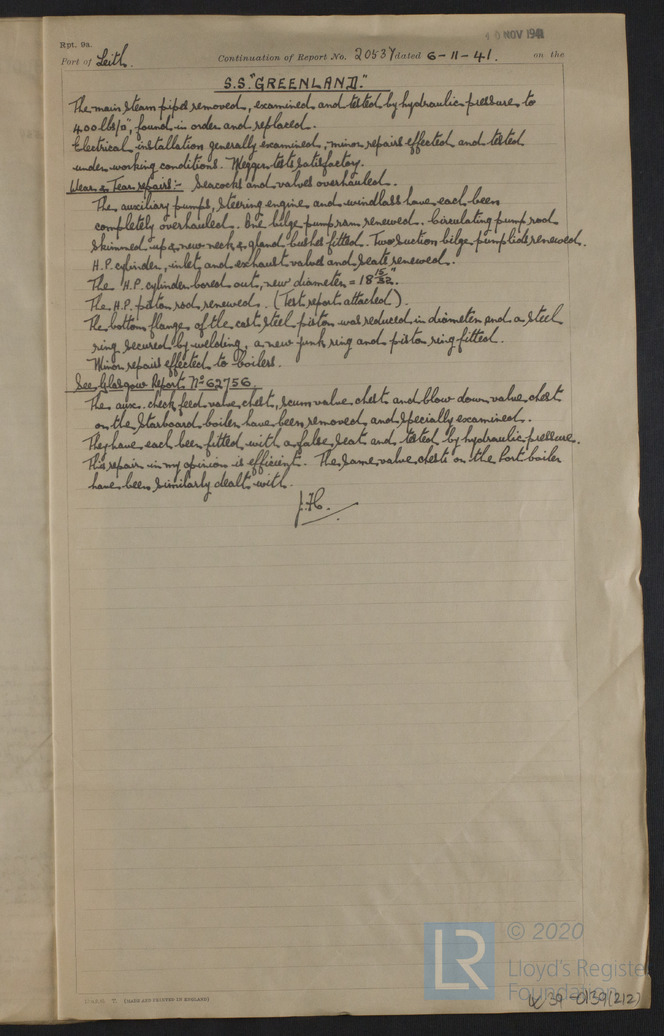 10 NOV 1941
Rpt. 9a.
Port of Leith. Continuation of Report No. 20537 dated 6-11-41. on the
S.S. "GREENLAND."
The main steam pipes removed, examined and tested by hydraulic pressure to
400 lbs/□", found in order and replaced.
Electrical installation generally examined, minor repairs effected and tested
under working conditions. Megger tests satisfactory.
Wear & Tear repairs:- Seacocks and valves overhauled.
The auxiliary pumps, steering engine and windlass have each been
completely overhauled. One bilge pump ram renewed. Circulating pump rod
skimmed up & new neck & gland bushes fitted. Two suction bilge pump lids renewed.
H.P. cylinder, inlet and exhaust valves and seats renewed.
The H.P. cylinder bored out, new diameter = 18 15/32".
The H.P. piston rod renewed. (Test report attached).
The bottom flange of the cast steel piston was reduced in diameter and a steel
ring secured by welding, a new junk ring and piston ring fitted.
Minor repairs effected to boilers.
See Glasgow Report No 62756.
The aux. check feed valve chest, scum valve chest and blow down valve chest
on the Starboard boiler have been removed and specially examined.
They have each been fitted with a false seat and tested by hydraulic pressure.
This repair in my opinion is efficient. The same valve chests on the Port boiler
have been similarly dealt with.
T. (MADE AND PRINTED IN ENGLAND)
LR © 2020
Lloyd's Register
Foundation
W39-0139(212)